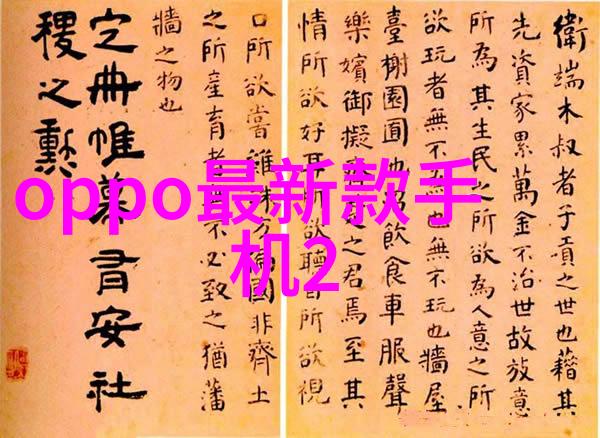 衛端木叔者子貢之世也藉其
先資家累萬金不治世故放意
所為其生民之所欲為人意之所
欲玩者無不為也無不玩也牆屋
臺榭園囿也飲食車服聲
樂嬪御擬齊之君焉至其
情所欲好耳所欲聽目所欲視
口所欲嘗雖殊方偏國非齊土
之所產育者無不必致之猶藩
牆之物也
定冊帷幕有安社
稷之勳
oppo最新款手
机2